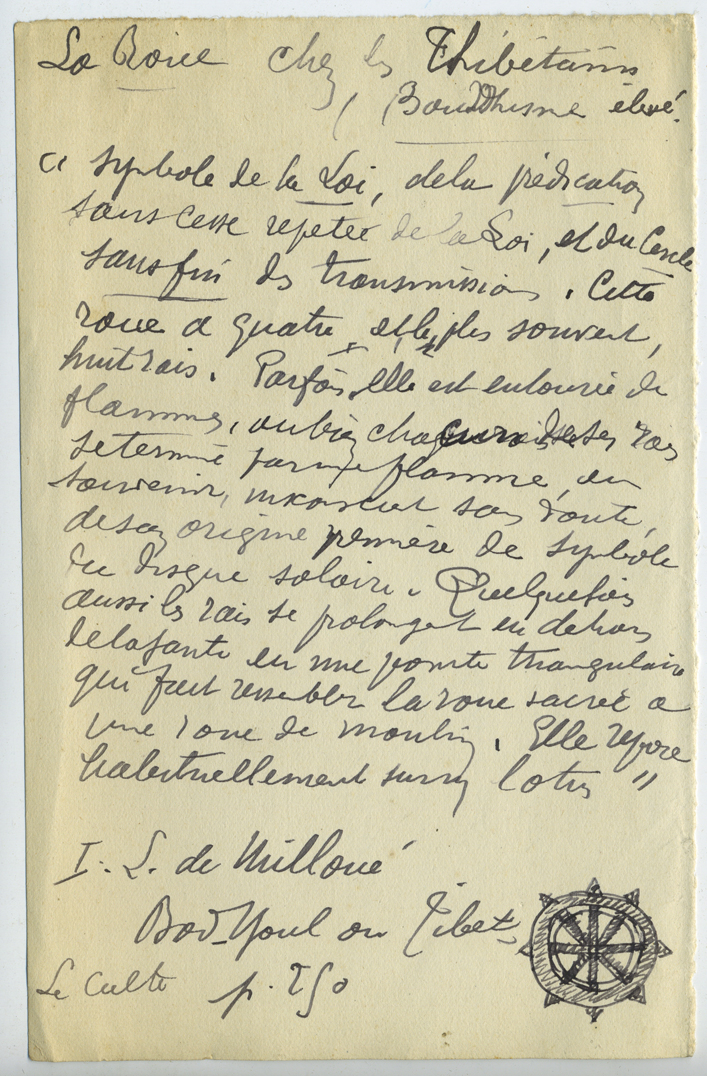 La Roue chez les Thibétains
( Bouddhisme élevé.
" Symbole de la Loi, de la prédication
sans cesse répétée de la Loi, et du Cercle
sans fin des transmissions. Cette
roue a quatre et, le plus souvent,
huit rais. Parfois, elle est entourée de
flammes, ou bien chacun de ses rais
se termine par une flamme, en
souvenir, inconscient sans doute,
de son origine première de symbole
du disque solaire. Quelquefois
aussi les rais se prolongent en dehors
de la jante en une pointe triangulaire
qui fait ressembler la roue sacrée a
une roue de moulin. Elle repose
habituellement sur un lotus "
I. L. de Milloué
Bod-Youl ou Tibet
Le Culte p. 250